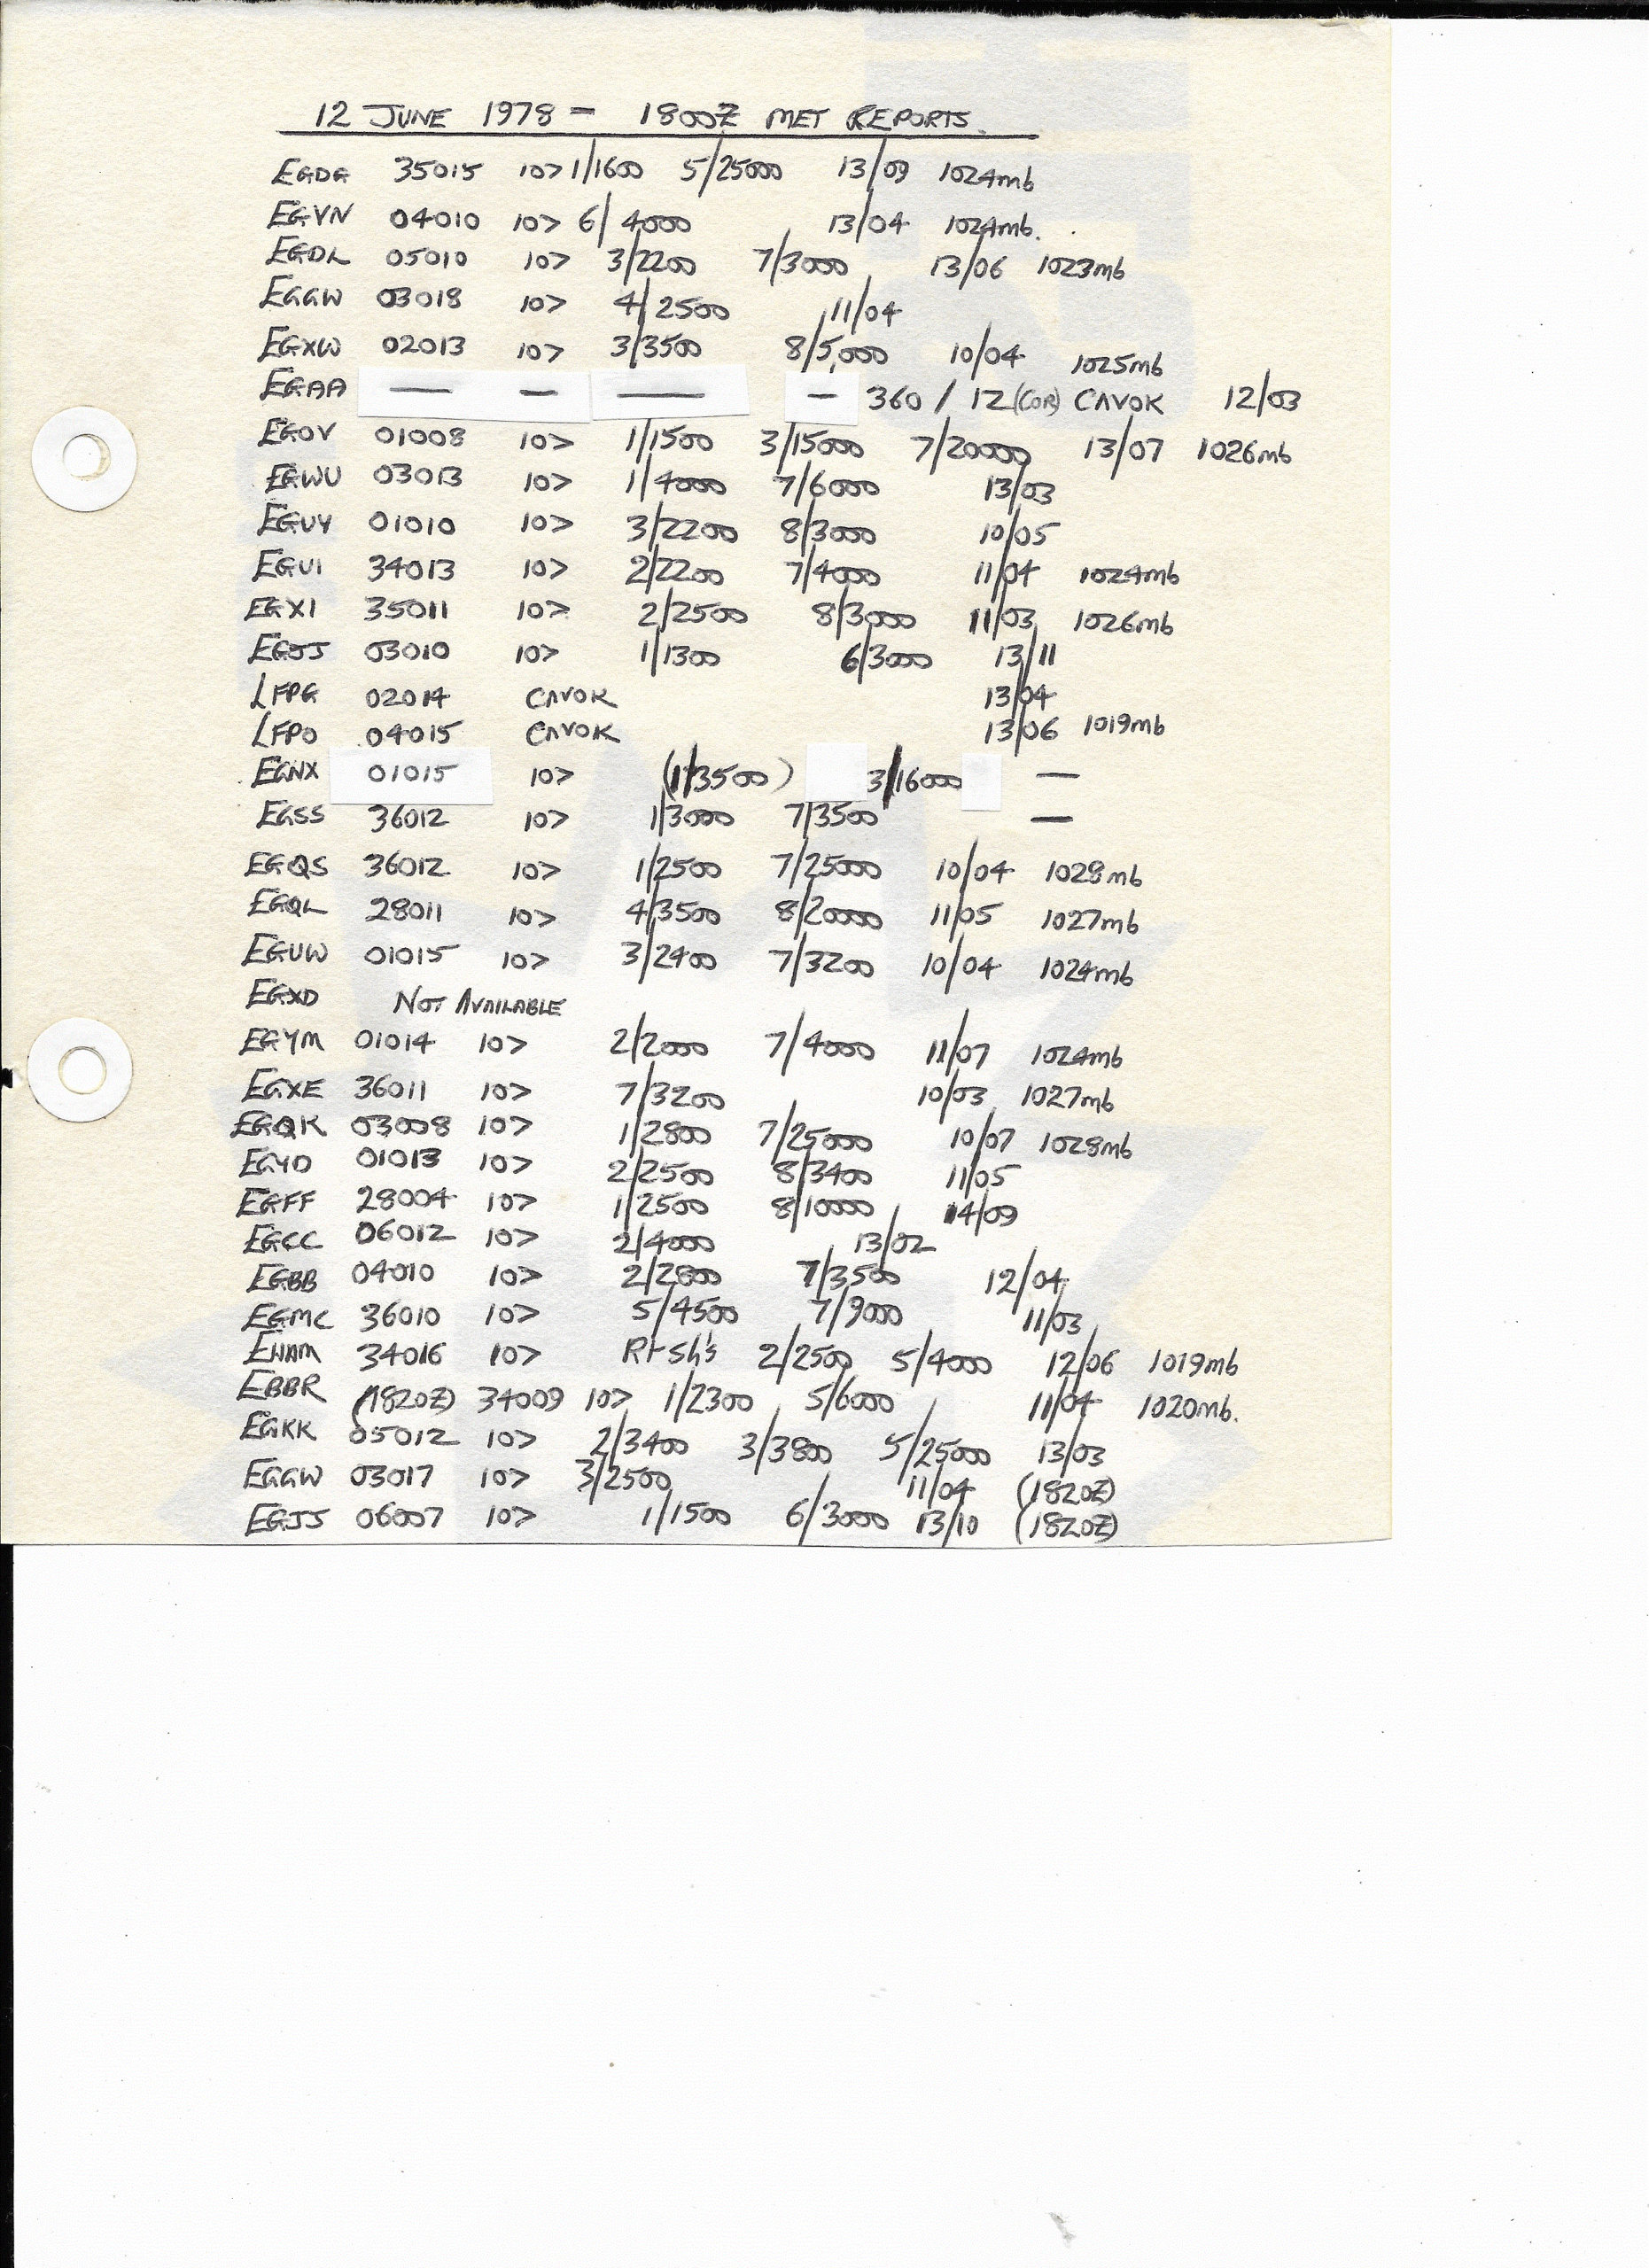 12 JUNE 1978 - 1800Z MET REPORTS.
EGDG 35015 10> 1/1600 5/25000 13/09 1024mb
EGVN 04010 10> 6/4000 13/04 1024mb.
EGDL 05010 10> 3/2200 7/3000 13/06 1023mb
EGGW 03018 10> 4/2500 11/04
EGXW 02013 10> 3/3500 8/5,000 10/04 1025mb
EGAA — — — — 360 / 12 (COR) CAVOK 12/03
EGOV 01008 10> 1/1500 3/15000 7/20000 13/07 1026mb
EGWU 03013 10> 1/4000 7/6000 13/03
EGUY 01010 10> 3/2200 8/3000 10/05
EGUI 34013 10> 2/2200 7/4000 11/04 1024mb
EGXI 35011 10> 2/2500 8/3000 11/03 1026mb
EGJJ 03010 10> 1/1300 6/3000 13/11
LFPG 02014 CAVOK 13/04
LFPO 04015 CAVOK 13/06 1019mb
EGNX 01015 10> (1/3500) 3/16000 —
EGSS 36012 10> 1/3000 7/3500 —
EGQS 36012 10> 1/2500 7/25000 10/04 1028mb
EGQL 28011 10> 4/3500 8/20000 11/05 1027mb
EGUW 01015 10> 3/2400 7/3200 10/04 1024mb
EGXD NOT AVAILABLE
EGYM 01014 10> 2/2000 7/4000 11/07 1024mb
EGXE 36011 10> 7/3200 10/03 1027mb
EGQK 03008 10> 1/2800 7/25000 10/07 1028mb
EGYD 01013 10> 2/2500 8/3400 11/05
EGFF 28004 10> 1/2500 8/10000 14/09
EGCC 06012 10> 2/4000 13/02
EGBB 04010 10> 2/2800 7/3500 12/04
EGMC 36010 10> 5/4500 7/9000 11/03
EHAM 34016 10> Rt Sh's 2/2500 5/4000 12/06 1019mb
EBBR (1820Z) 34009 10> 1/2300 5/6000 11/04 1020mb.
EGKK 05012 10> 2/3400 3/3800 5/25000 13/03
EGGW 03017 10> 3/2500 11/04 (1820Z)
EGJJ 06007 10> 1/1500 6/3000 13/10 (1820Z)